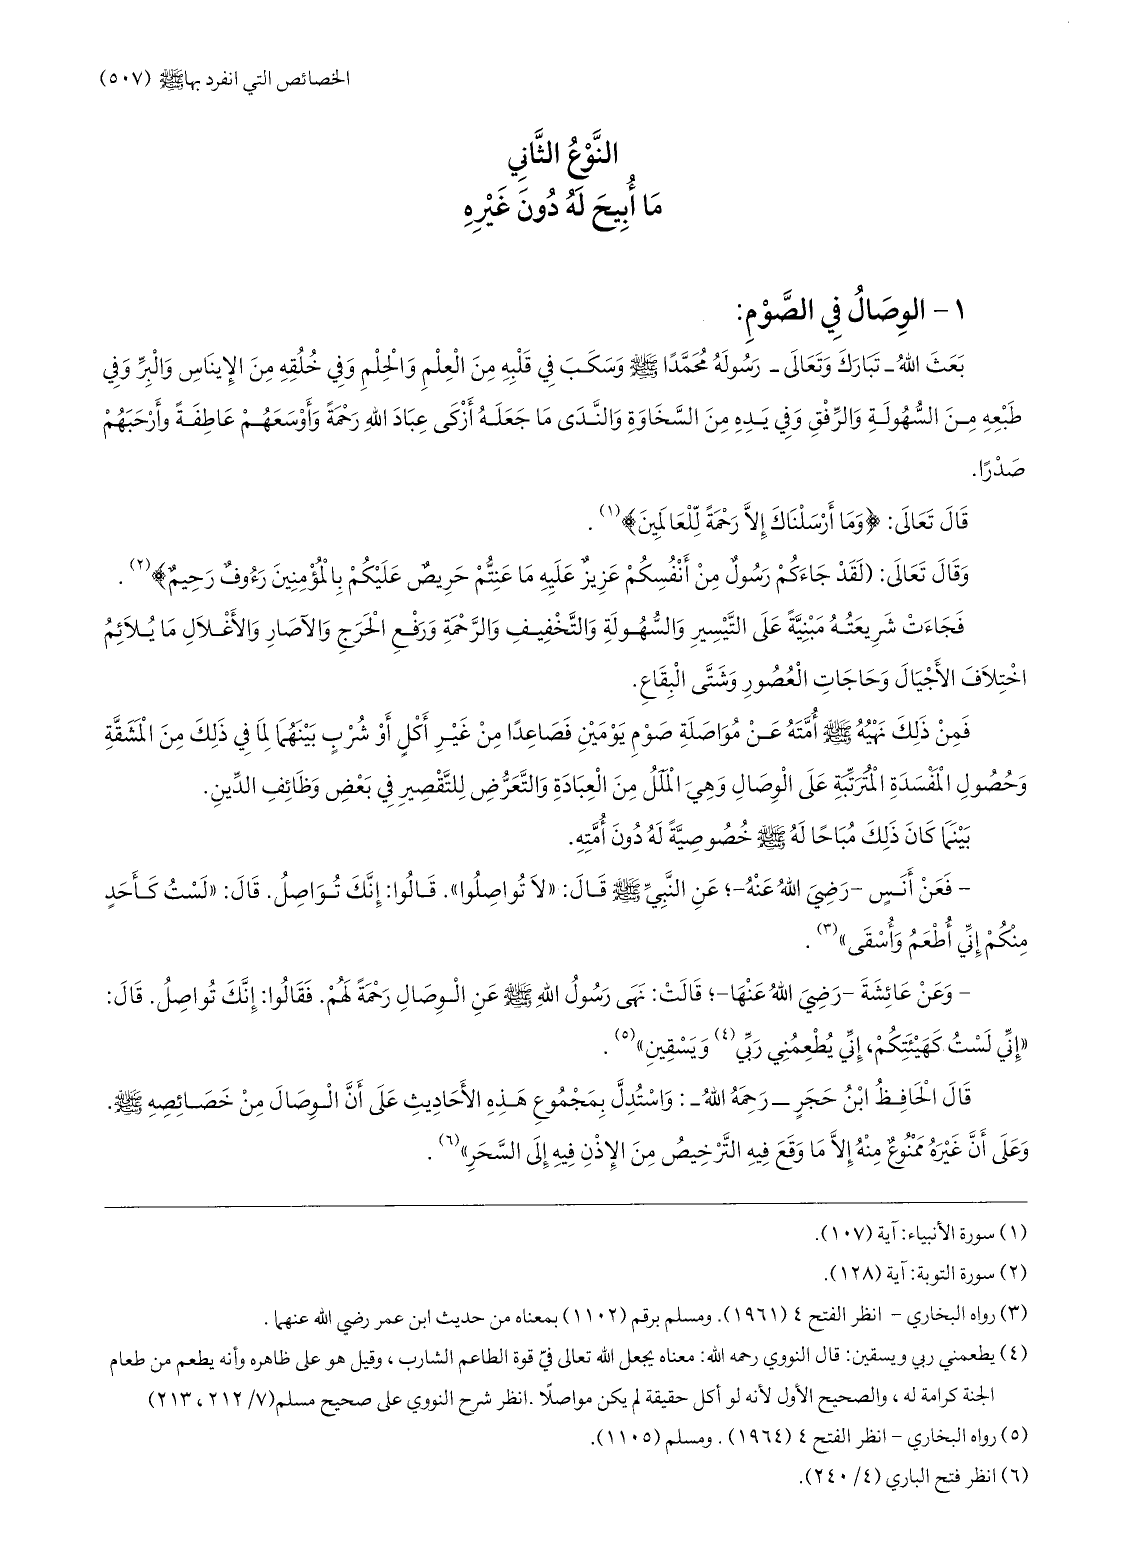 الخصائص التي انفرد بها ﷺ (٥٠٧)
النَّوْعُ الثَّانِي
مَا أُبِيحَ لَهُ دُونَ غَيْرِهِ
١ – الوِصَالُ فِي الصَّوْمِ:
بَعَثَ اللهُ ـ تَبَارَكَ وَتَعَالَى ـ رَسُولَهُ مُحَمَّدًا ﷺ وَسَكَبَ فِي قَلْبِهِ مِنَ الْعِلْمِ وَالْحِلْمِ وَفِي خُلُقِهِ مِنَ الإِينَاسِ وَالْبِرِّ وَفِي
طَبْعِهِ مِنَ السُّهُولَةِ وَالرِّفْقِ وَفِي يَدِهِ مِنَ السَّخَاوَةِ وَالنَّدَى مَا جَعَلَهُ أَزْكَى عِبَادَ اللهِ رَحْمَةً وَأَوْسَعَهُمْ عَاطِفَةً وَأَرْحَبَهُمْ
صَدْرًا.
قَالَ تَعَالَى: ﴿وَمَا أَرْسَلْنَاكَ إِلاَّ رَحْمَةً لِّلْعَالَمِينَ﴾(١) .
وَقَالَ تَعَالَى: (لَقَدْ جَاءَكُمْ رَسُولٌ مِنْ أَنْفُسِكُمْ عَزِيزٌ عَلَيهِ مَا عَنِتُّمْ حَرِيصٌ عَلَيْكُمْ بِالْمُؤْمِنِينَ رَءُوفٌ رَحِيمٌ﴾(٢) .
فَجَاءَتْ شَرِيعَتُهُ مَبْنِيَّةً عَلَى التَّيْسِيرِ وَالسُّهُولَةِ وَالتَّخْفِيفِ وَالرَّحْمَةِ وَرَفْعِ الْحَرَجِ وَالآصَارِ وَالأَغْلاَلِ مَا يُلاَئِمُ
اخْتِلاَفَ الأَجْيَالَ وَحَاجَاتِ الْعُصُورِ وَشَتَّى الْبِقَاعِ.
فَمِنْ ذَلِكَ نَهْيُهُ ﷺ أُمَّتَهُ عَنْ مُوَاصَلَةِ صَوْمِ يَوْمَيْنِ فَصَاعِدًا مِنْ غَيْرِ أَكْلٍ أَوْ شُرْبٍ بَيْنَهُمَا لِمَا فِي ذَلِكَ مِنَ الْمَشَقَّةِ
وَحُصُولِ الْمَفْسَدَةِ الْمُتَرَتِّبَةِ عَلَى الْوِصَالِ وَهِيَ الْمَلَلُ مِنَ العِبَادَةِ وَالتَّعَرُّضِ لِلتَّقْصِيرِ فِي بَعْضِ وَظَائِفِ الدِّينِ.
بَيْنَمَا كَانَ ذَلِكَ مُبَاحًا لَهُ ﷺ خُصُوصِيَّةً لَهُ دُونَ أُمَّتِهِ.
– فَعَنْ أَنَسٍ –رَضِيَ اللهُ عَنْهُ–؛ عَنِ النَّبِيِّ ﷺ قَالَ: «لاَ تُواصِلُوا». قَالُوا: إِنَّكَ تُوَاصِلُ. قَالَ: «لَسْتُ كَأَحَدٍ
مِنْكُمْ إِنِّي أُطْعَمُ وَأُسْقَى»(٣) .
– وَعَنْ عَائِشَةَ –رَضِيَ اللهُ عَنْهَا–؛ قَالَتْ: نَهَى رَسُولُ اللهِ ﷺ عَنِ الْوِصَالِ رَحْمَةً لَهُمْ. فَقَالُوا: إِنَّكَ تُواصِلُ. قَالَ:
«إِنِّي لَسْتُ كَهَيْئَتِكُمْ، إِنِّي يُطْعِمُنِي رَبِّي(٤) وَيَسْقِينِ»(٥) .
قَالَ الْحَافِظُ ابْنُ حَجَرٍ ــ رَحِمَهُ اللهُ ـ : وَاسْتُدِلَّ بِمَجْمُوعِ هَذِهِ الأَحَادِيثِ عَلَى أَنَّ الْوِصَالَ مِنْ خَصَائِصِهِ ﷺ.
وَعَلَى أَنَّ غَيْرَهُ مَمْنُوعٌ مِنْهُ إِلاَّ مَا وَقَعَ فِيهِ التَّرْخِيصُ مِنَ الإِذْنِ فِيهِ إِلَى السَّحَرِ»(٦) .
(١) سورة الأنبياء: آية (١٠٧).
(٢) سورة التوبة: آية (١٢٨).
(٣) رواه البخاري – انظر الفتح ٤ (١٩٦١). ومسلم برقم (١١٠٢) بمعناه من حديث ابن عمر رضي الله عنهما .
(٤) يطعمني ربي ويسقين: قال النووي رحمه الله: معناه يجعل الله تعالى فيّ قوة الطاعم الشارب ، وقيل هو على ظاهره وأنه يطعم من طعام
الجنة كرامة له ، والصحيح الأول لأنه لو أكل حقيقة لم يكن مواصلًا .انظر شرح النووي على صحيح مسلم(٧/ ٢١٢ ، ٢١٣)
(٥) رواه البخاري – انظر الفتح ٤ (١٩٦٤) . ومسلم (١١٠٥).
(٦) انظر فتح الباري (٤/ ٢٤٠).